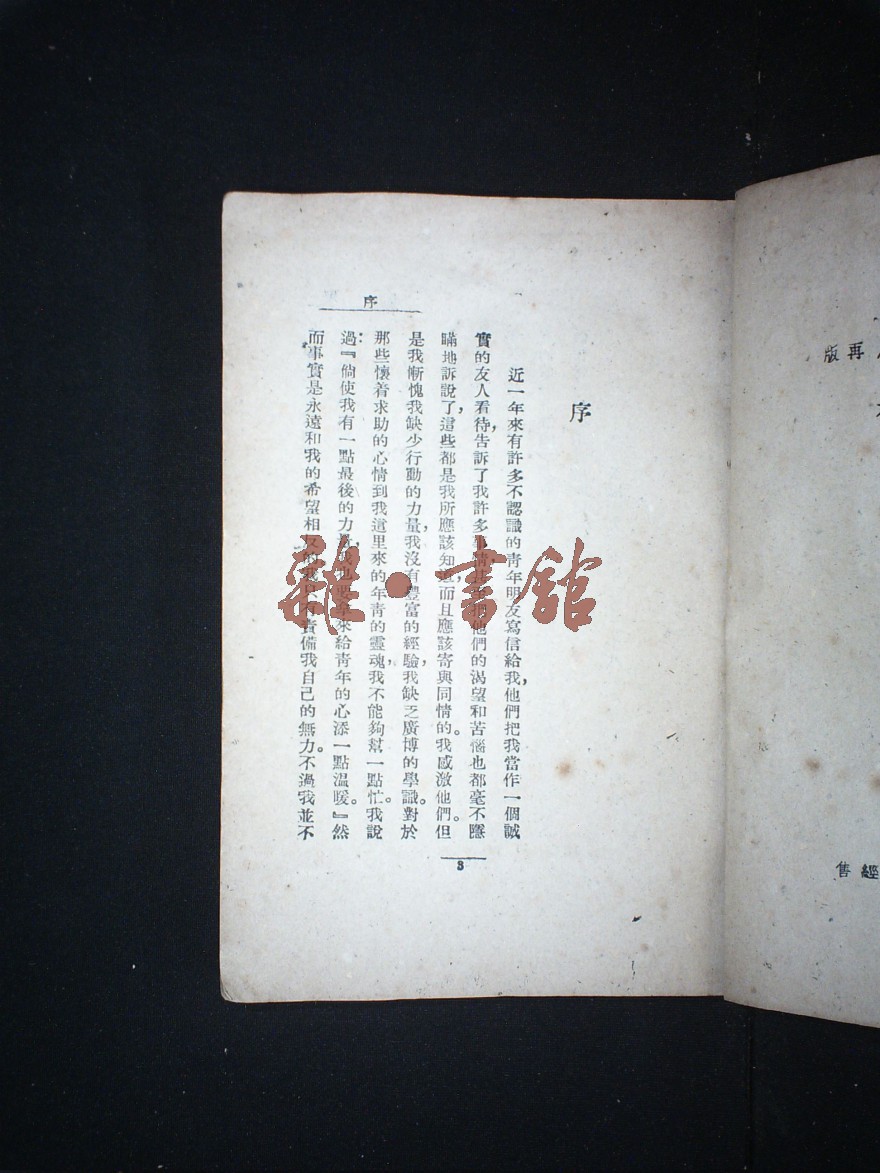 版再
售經
序
近一年來有許多不認識的靑年朋友寫信給我，他們把我當作一個誠
實的友人看待，告訴了我許多事情，他們的渴望和苦惱也都毫不隱
瞞地訴說了，這些都是我所應該知道，而且應該寄與同情的。我感激他們。但
是我慚愧我缺少行動的力量，我沒有豐富的經驗，我缺乏廣博的學識。對於
那些懷着求助的心情到我這里來的年靑的靈魂，我不能夠幫一點忙。我說
過：『倘使我有一點最後的力量，我也要拿來給靑年的心添一點溫暖。』然
而事實是永遠和我的希望相反的，我只有責備我自己的無力。不過我並不
序
3
雜·書館